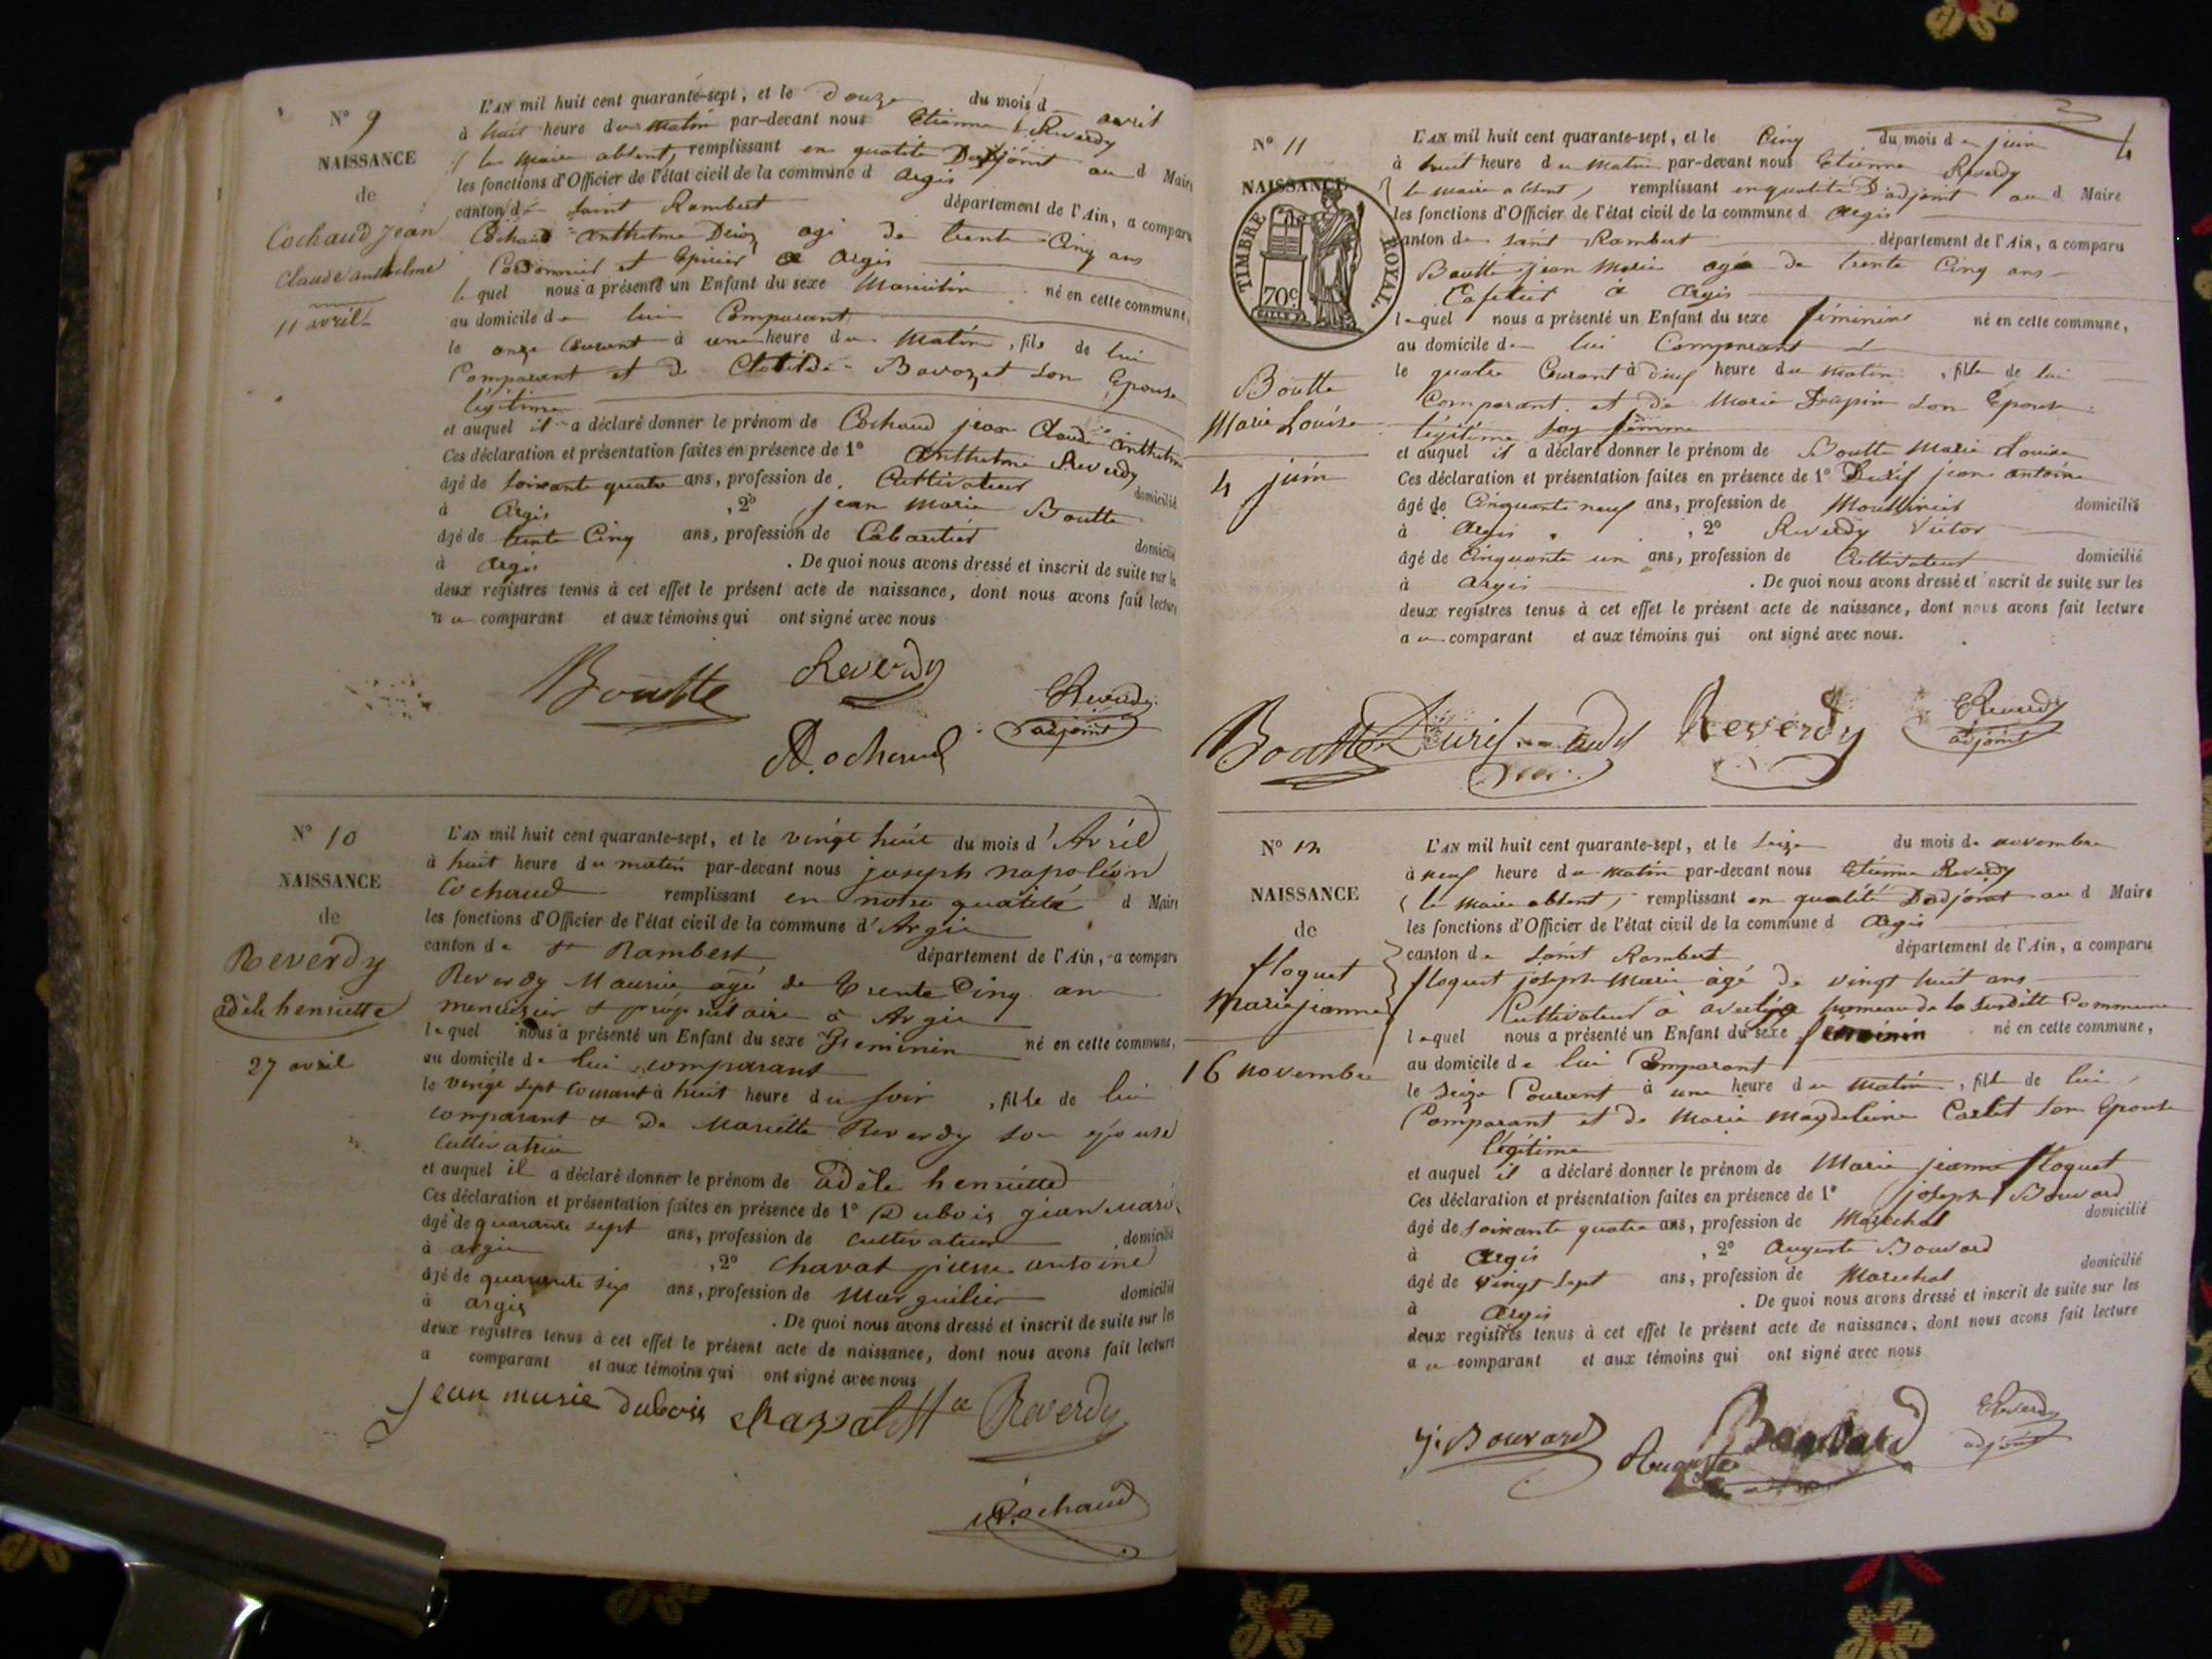 N° 9
NAISSANCE
de
Cochaud Jean
Claude anthelme
11 avril
L'AN mil huit cent quarante-sept, et le Douze du mois d avril
à huit heure du matin par-devant nous Etienne Reverdy
( le maire absent, remplissant en qualité D'adjoint au d Maire
les fonctions d'Officier de l'état civil de la commune d Argis
canton de saint Rambert département de l'Ain, a comparu
Cochaud anthelme agé de trente Cinq ans
Cordonnier et Epicier a Argis
lequel nous a présenté un Enfant du sexe Masculin né en cette commune,
au domicile de lui Comparant
le onze Courant à une heure du Matin, fils de lui
Comparant et de Clotilde Bavozet son Epouse
légitime
et auquel il a déclaré donner le prénom de Cochaud jean Claude anthelme
Ces déclaration et présentation faites en présence de 1° Anthelme Reverdy
âgé de soixante quatre ans, profession de Cultivateur domicilié
à Argis, 2° jean Marie Boutte
âgé de trente Cinq ans, profession de Cabaretier domicilié
à Argis. De quoi nous avons dressé et inscrit de suite sur les
deux registres tenus à cet effet le présent acte de naissance, dont nous avons fait lecture
au comparant et aux témoins qui ont signé avec nous
Boutte Reverdy EReverdy
adjoint
A Cochaud
N° 10
NAISSANCE
de
Reverdy
adèle henriette
27 avril
L'AN mil huit cent quarante-sept, et le vingt huit du mois d'Avril
à huit heure du matin par-devant nous joseph napoléon
Cochaud remplissant en notre qualité d Maire
les fonctions d'Officier de l'état civil de la commune d'Argis
canton de St Rambert département de l'Ain, a comparu
Reverdy Maurice agé de Trente Cinq ans
menuisier & propriétaire à Argis
lequel nous a présenté un Enfant du sexe Feminin né en cette commune,
au domicile de lui comparant
le vingt sept Courant à huit heure du soir, fille de lui
comparant & De Mariette Reverdy son epouse
Cultivatrice
et auquel il a déclaré donner le prénom de Adèle henriette
Ces déclaration et présentation faites en présence de 1° Dubois jean marie
âgé de quarante sept ans, profession de cultivateur domicilié
à argis, 2° Chavat pierre antoine
âgé de quarante six ans, profession de Marguilier domicilié
à argis. De quoi nous avons dressé et inscrit de suite sur les
deux registres tenus à cet effet le présent acte de naissance, dont nous avons fait lecture
a comparant et aux témoins qui ont signé avec nous
Jean marie dubois Reverdy
Cochaud
4
N° 11
NAISSANCE
TIMBRE ROYAL.
70c
Boutte
Marie Louise
4 juin
L'AN mil huit cent quarante-sept, et le Cinq du mois de juin
à huit heure du Matin par-devant nous Etienne Reverdy
( le maire absent, remplissant en qualité D'adjoint au d Maire
les fonctions d'Officier de l'état civil de la commune d Argis
canton de saint Rambert département de l'Ain, a comparu
Boutte jean Marie agé de trente Cinq ans
Cafetier à Argis
lequel nous a présenté un Enfant du sexe féminin né en cette commune,
au domicile de lui Comparant
le quatre Courant à deux heure du matin, fille de lui
Comparant et de Marie Drapin son Epouse
légitime femme
et auquel il a déclaré donner le prénom de Boutte Marie Louise
Ces déclaration et présentation faites en présence de 1° Durif jean antoine
âgé de Cinquante neuf ans, profession de domicilié
à Argis, 2° Reverdy Victor
âgé de Cinquante un ans, profession de Cultivateur domicilié
à Argis. De quoi nous avons dressé et inscrit de suite sur les
deux registres tenus à cet effet le présent acte de naissance, dont nous avons fait lecture
au comparant et aux témoins qui ont signé avec nous.
Boutte Durif Reverdy EReverdy
adjoint
N° 12
NAISSANCE
de
floquet
Marie jeanne
16 novembre
L'AN mil huit cent quarante-sept, et le seize du mois de novembre
à neuf heure du matin par-devant nous Etienne Reverdy
( le maire absent, remplissant en qualité D'adjoint au d Maire
les fonctions d'Officier de l'état civil de la commune d Argis
canton de saint Rambert département de l'Ain, a comparu
floquet joseph Marie agé de vingt huit ans
Cultivateur à hameau de la susditte Commune
lequel nous a présenté un Enfant du sexe féminin né en cette commune,
au domicile de lui Comparant
le seize Courant à une heure du matin, fille de lui
Comparant et de Marie Magdeleine Carlet son Epouse
légitime
et auquel il a déclaré donner le prénom de Marie jeanne floquet
Ces déclaration et présentation faites en présence de 1° joseph Bouvard
âgé de soixante quatre ans, profession de Maréchal domicilié
à Argis, 2° Auguste Bouvard
âgé de vingt sept ans, profession de Marechal domicilié
à Argis. De quoi nous avons dressé et inscrit de suite sur les
deux registres tenus à cet effet le présent acte de naissance, dont nous avons fait lecture
au comparant et aux témoins qui ont signé avec nous
j. Bouvard Auguste Bouvard EReverdy
adjoint